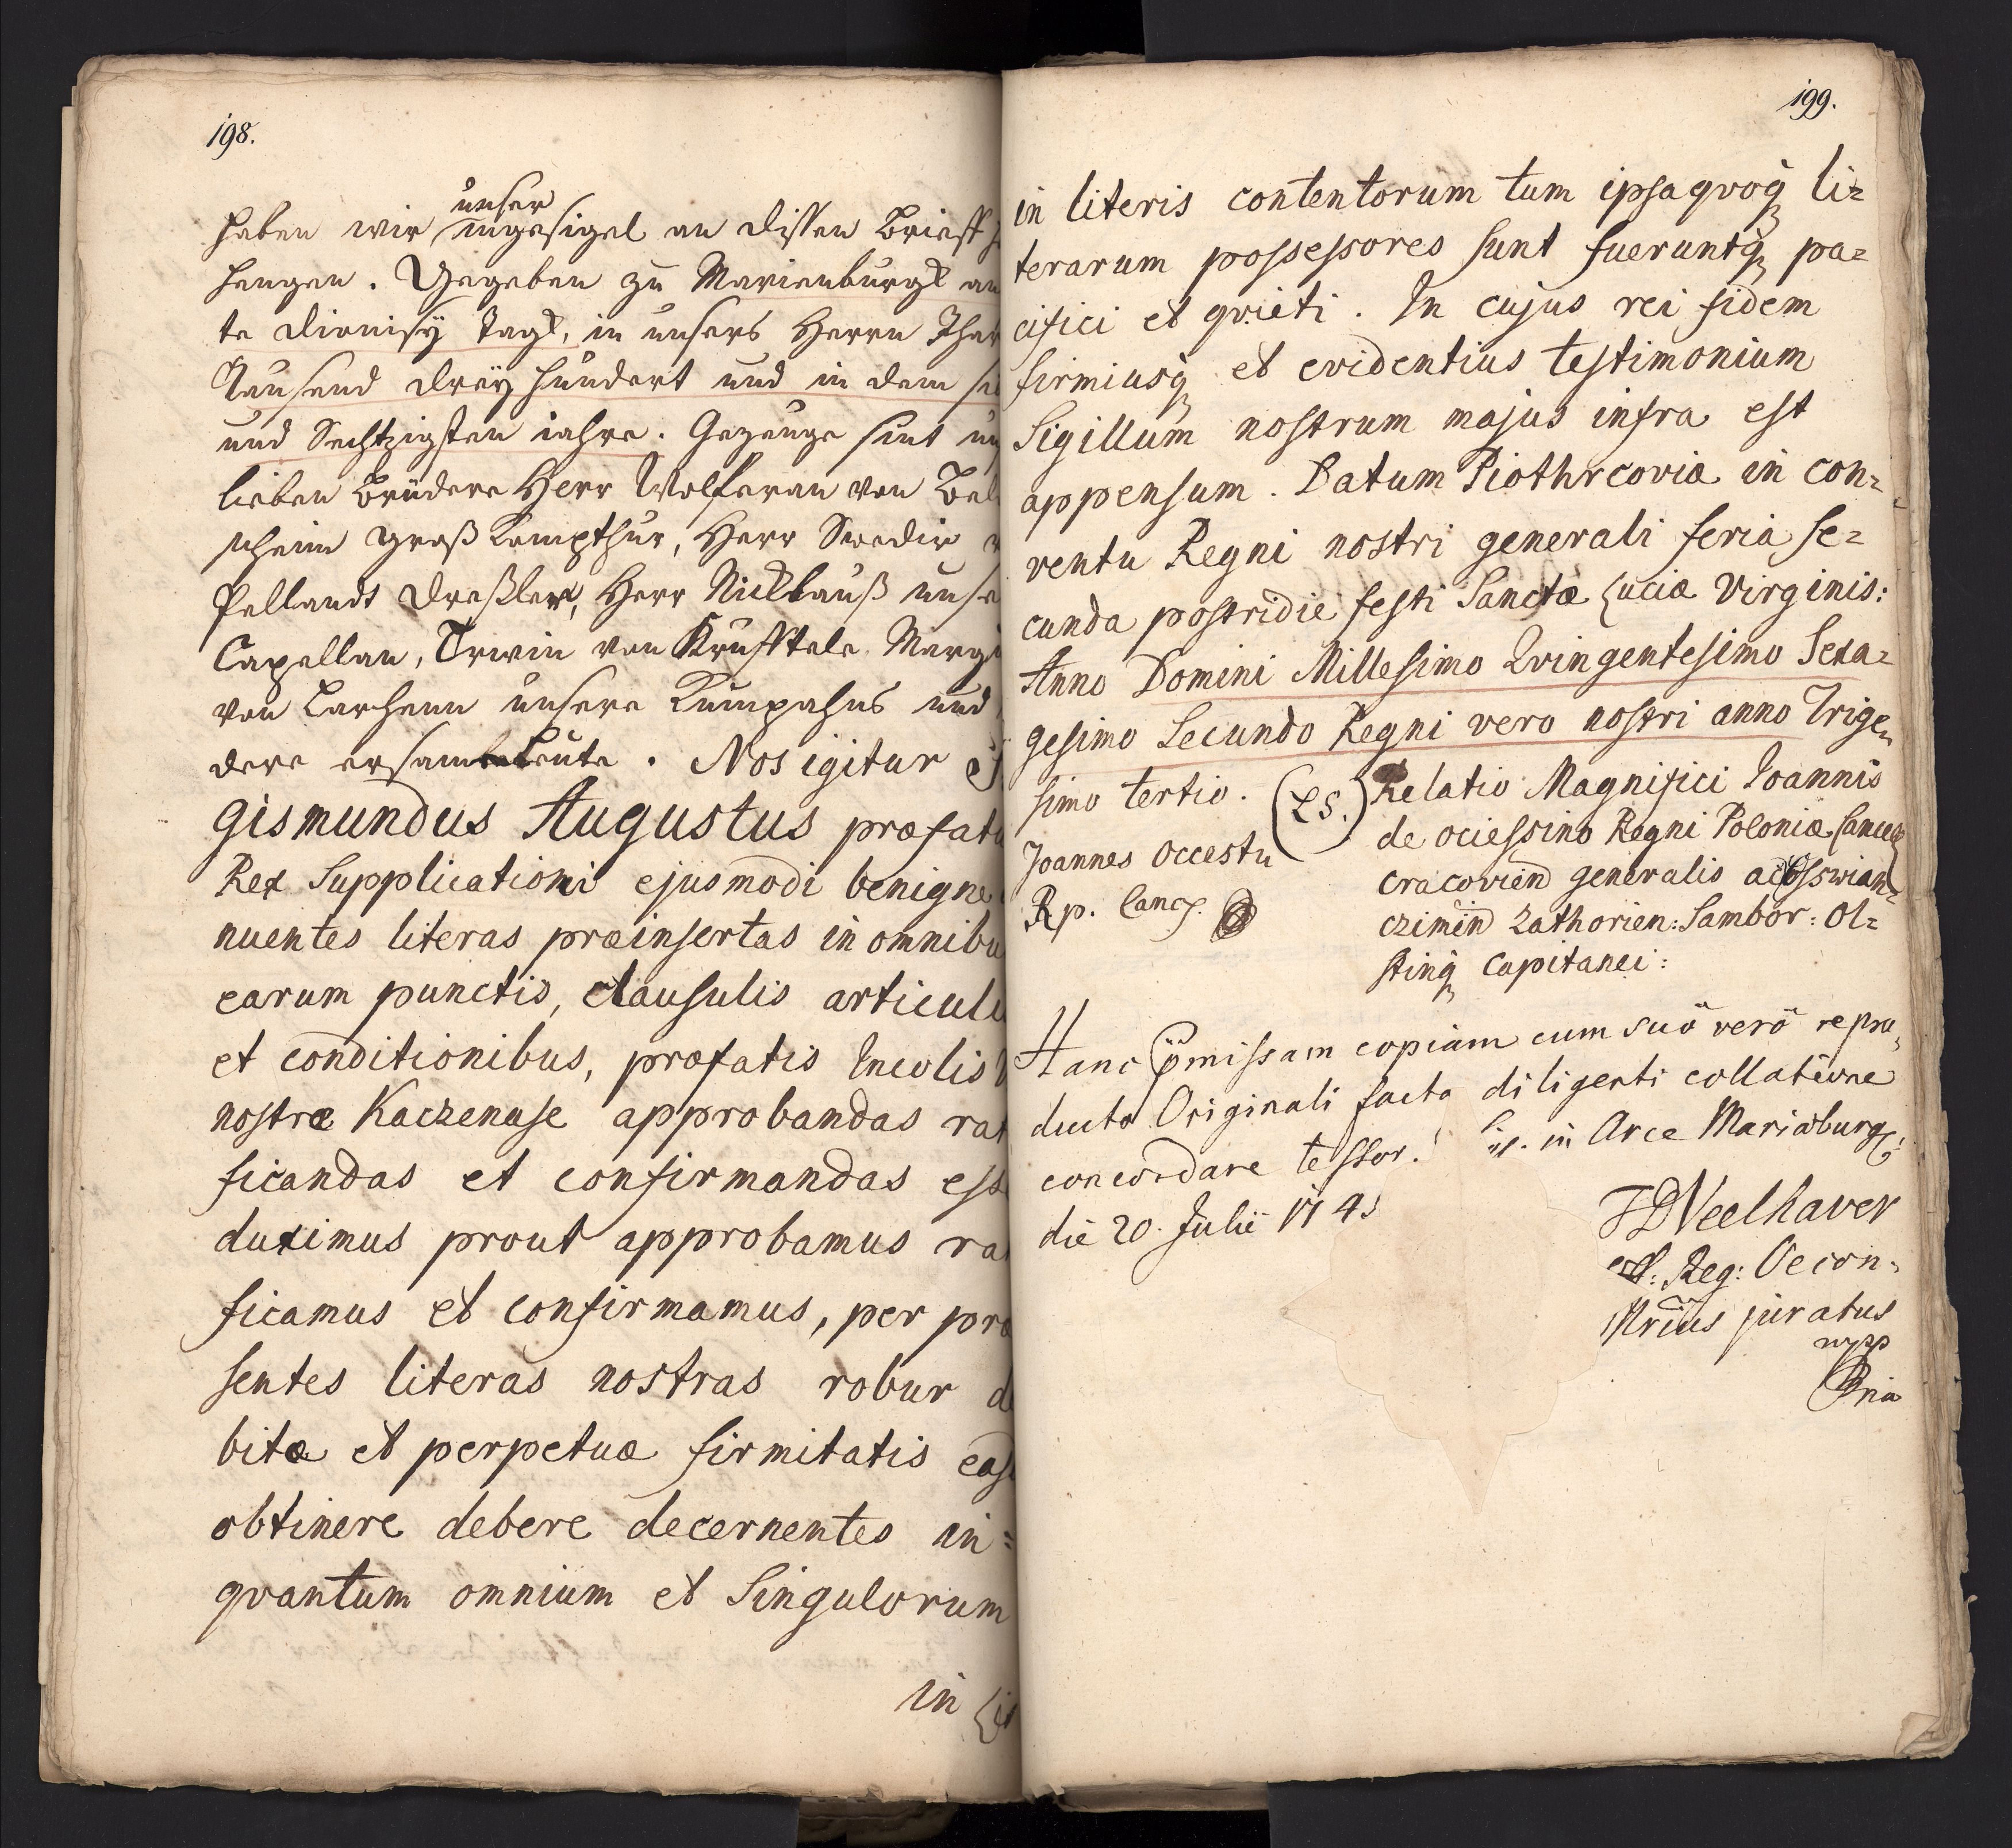 198.
haben wir unser ingesigel an dissen Brieff
hengen. Gegeben zu Marienburgk an
te Dionisÿ Tagk, in unsers Herrn Thar
Tausend dreÿ hundert und in dem
und Sechtzigsten iahre. Gezeuge sint
lieben Brüdere Herr Wolferan von Bal
sheim groß Kompthur, Herr Swedir
Pellandt Dreßler, Herr Nicklauß unse
Capellan, Erwin von Krufftele Marq
von Larheim unsere Kumpahns und
dere ersame Leute. Nos igitur
gismundus Augustus præfatu
Rex Supplicationi ejusmodi benigne
nuentes literas præinsertas in omnibu
earum punctis, clausulis articul
et conditionibus, præfatis Incolis
nostræ Kaczenase approbandas rat
ficandas et confirmandas ess
duximus prout approbamus ra
ficamus et confirmamus, per præ
sentes literas nostras robur d
bitæ et perpetuæ firmitatis eas
obtinere debere decernentes in=
qvantum omnium et Singulorum
in
199.
in literis contentorum tum ipsaqvoq li=
terarum possessores sunt fueruntq pa=
cifici et qvieti. In cujus rei fidem
firmiusq et evidentius testimonium
Sigillum nostrum majus infra est
appensum. Datum Piothrcoviæ in con=
ventu Regni nostri generali feria se=
cunda postridie festi Sanctæ Luciæ Virginis:
Anno Domini Millesimo Qvingentesimo Sexa=
gesimo Secundo Regni vero nostri anno Trige=
simo tertio. (LS.) Relatio Magnifici Joannis
de ociessino Regni Poloniæ Cancell
Joannes Occestu
cracovien generalis ac Osswian=
Rp. Canc.
czimin Zathorien: Sambor: Ol=
stinq Capitanei:
Hanc pmissam copiam cum suô verô repro=
ducto Originali facta diligenti collatione
concordare testor. in Arce Mariæburg:
die 20. Julii 174
Neelhaver
Reg: Oecon.
Nrius juratus
mpp